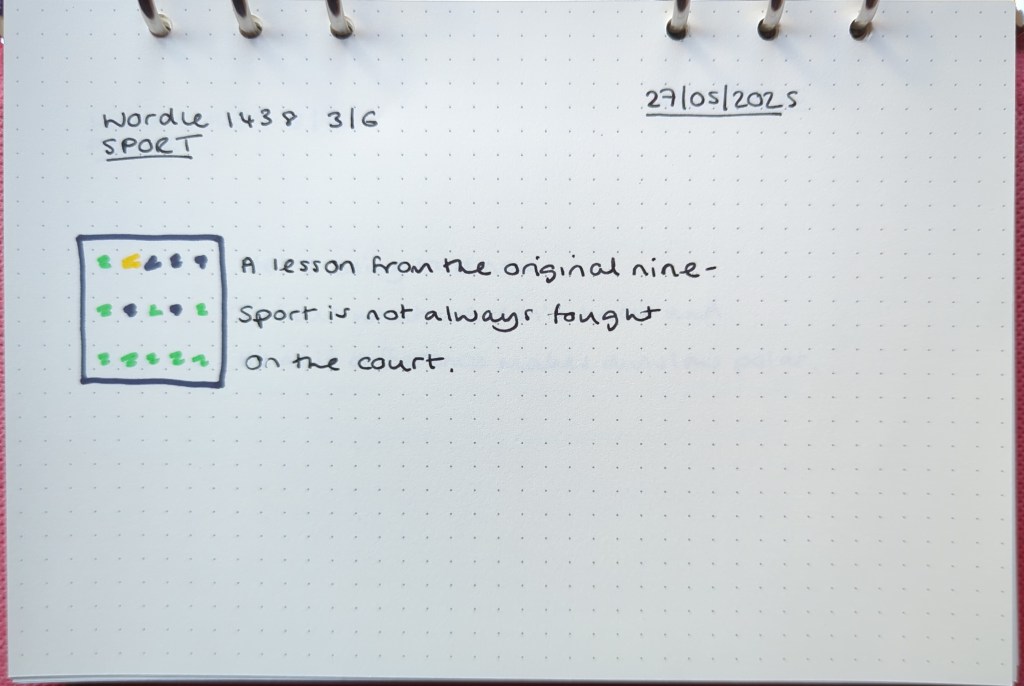 Wordle 1438 3/6
27/05/2025
SPORT
A lesson from the original nine-
Sport is not always fought
on the court.